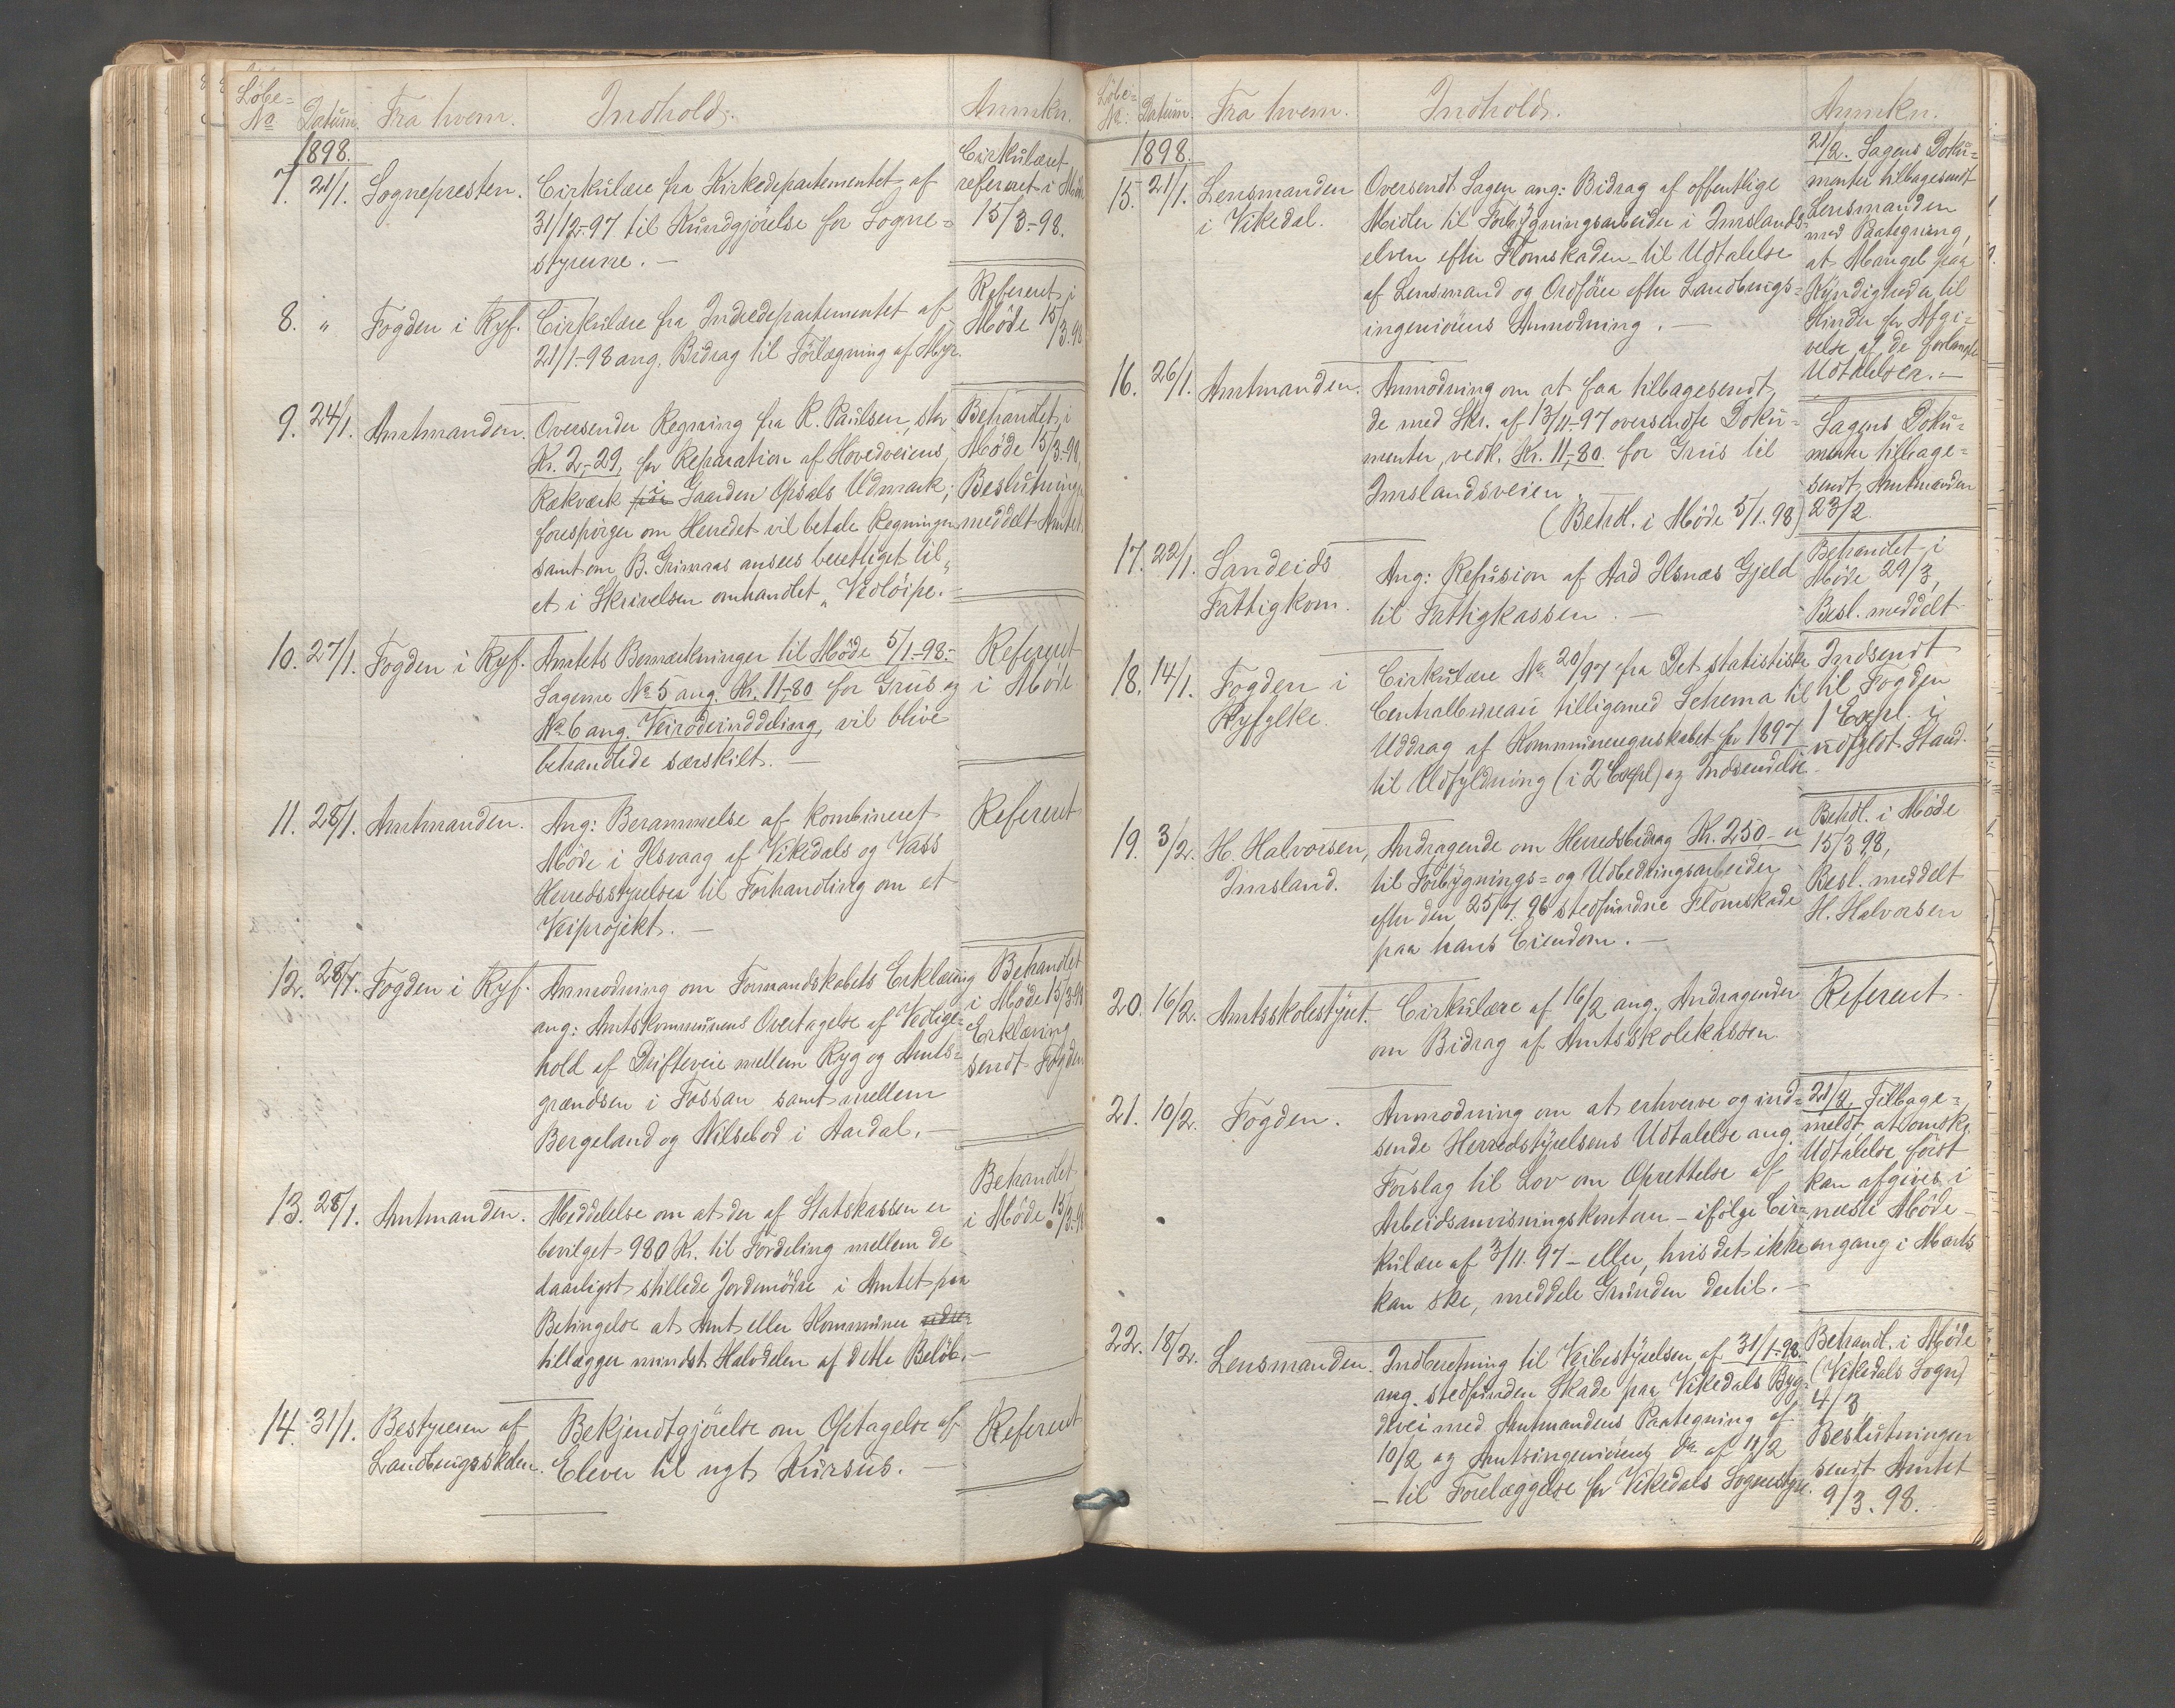 Løbe=
No
Datum.
Fra hvem.
Indhold.
Anmkn.
1898.
7. 21/1. Sognepresten.
Cirkulære fra Kirkedepartementet af
31/12-97 til Kundgjörelse for Sogne=
styrerne. —
Cirkulæret
refereret i Möde
15/3-98.
8. " Fogden i Ryf.
Cirkulære fra Indredepartementet af
21/1-98 ang. Bidrag til of Myr.
Refereret i
Möde 15/3.98
9. 24/1. Amtmanden.
Oversender Regning fra R. Paulsen, stor
Kr. 2,-29, for Reparation af Hovedveiens
Rækværk i Gaarden Opsals Udmark;
forespörger om Herredet vil betale Regningen
samt om B. Grimaas ansees berettiget til
et i Skrivelsen omhandlet „Vedlöipe." —
Behandlet i
Möde 15/3-98,
Beslutningen
meddelt Amtet.
10. 27/1. Fogden i Ryf.
Amtets Bemærkninger til Möde 5/1.-98:-
Sagerne No 5 ang. Kr. 11,-80 for Grus og
No 6 ang. Veirodeinddeling, vil blive
behandlede særskilt. —
Refereret
i Möde
11. 28/1. Amtmanden.
Ang: Berammelse af kombineret
Möde i Ilsvaag af Vikedals og Vass
Herredsstyrelser til Forhandling om et
Veiprojekt. —
Refereret
12. 28/1. Fogden i Ryf.
Anmodning om Formandskabets Erklæring
ang: Amtskommunens Overtagelse af Vedlige=
hold af Drifteveie mellem Ryg og Amts=
grændsen i Fossan samt mellem
Bergeland og Nilsebod i Aardal. —
Behandlet
i Möde 15/3-98
Erklæring
sendt Fogden
13. 28/1. Amtmanden.
Meddelelse om at der af Statskassen er
bevilget 980 Kr. til Fordeling mellem de
daarligst stillede Jordemödre i Amtet paa
Betingelse at Amt eller Kommuner
tillægger mindst Halvdelen af dette Belöb. —
Behandlet
i Möde 15/3-98
14. 31/1. Bestyreren af
Landbrugsskolen.
Bekjendtgjörelse om Optagelse af
Elever til nyt Kursus. —
Refereret
Løbe=
No:
Datum.
Fra hvem.
Indhold.
Anmkn.
1898.
15. 21/1. Lensmanden
i Vikedal.
Oversendt Sagen ang: Bidrag af offentlige
Midler til Forbygningsarbeider i Imslands=
elven efter Flomskaden – til Udtalelse
af Lensmand og Ordförer efter Landbrugs=
ingeniörens Anmodning. —
21/2. Sagens Doku=
menter tilbagesendt
Lensmanden
med Paategning,
at Mangel paa
Kyndigheder til
Hinder for Afgi=
velse af de forlangte
Udtalelser. —
16. 26/1. Amtmanden.
Anmodning om at faa tilbagesendt
de med Skr. af 13/11-97 oversendte Doku=
menter, vedk. Kr. 11,-80 for Grus til
Imslandsveien.
(Behdl. i Möde 5/1.98)
Sagens Doku=
menter tilbage=
sendt Amtmanden
23/2
17. 22/1. Sandeids
Fattigkom.
Ang: Refusion af Aad Ilsnæs Gjeld
til Fattigkassen. —
Behandlet i
Möde 29/3,
Besl. meddelt
18. 14/1. Fogden i
Ryfylke.
Cirkulære No 20/97 fra Det statistiske
Centralbureau tilligemed Schema til
Uddrag af Kommuneregnskabet for 1897
til Udfyldning (i 2 Expl) og Indsendelse
Indsendt
til Fogden
1 Expl. i
udfyldt Stand.
19. 3/2. H. Halvorsen,
Imsland.
Andragende om Herredsbidrag Kr. 250,-
til Forbygnings= og Udbedringsarbeider
efter den 25/7. 96 stedfundne Flomskade
paa hans Eiendom. —
Behdl. i Möde
15/3 98,
Besl. meddelt
H. Halvorsen
20. 16/2. Amtsskolestyret.
Cirkulære af 16/2 ang. Andragender
om Bidrag af Amtsskolekassen.
Refereret
21. 10/2. Fogden.
Anmodning om at erhverve og ind=
sende Herredstyrelsens Udtalelse ang.
Forslag til Lov om Oprettelse af
Arbeidsanvisningskontorer – ifölge Cir=
kulære af 3/11.97 – eller, hvis det ikke
kan ske, meddele Grunden dertil. —
21/2. Tilbage=
meldt at omskr.
Udtalelse först
kan afgives i
næste Möde –
engang i Marts
22. 18/2. Lensmanden.
Indberetning til Veibestyrelsen af 31/1-98.
ang. stedfunden Skade paa Vikedals Byg=
devei med Amtmandens Paategning af
10/2 og Amtsingeniörens do af 12/2
– til Forelæggelse for Vikedals Sognestyre.
Behandl. i Möde
(Vikedals Sogn)
4/3,
Beslutningen
sendt Amtet
9/3. 98.